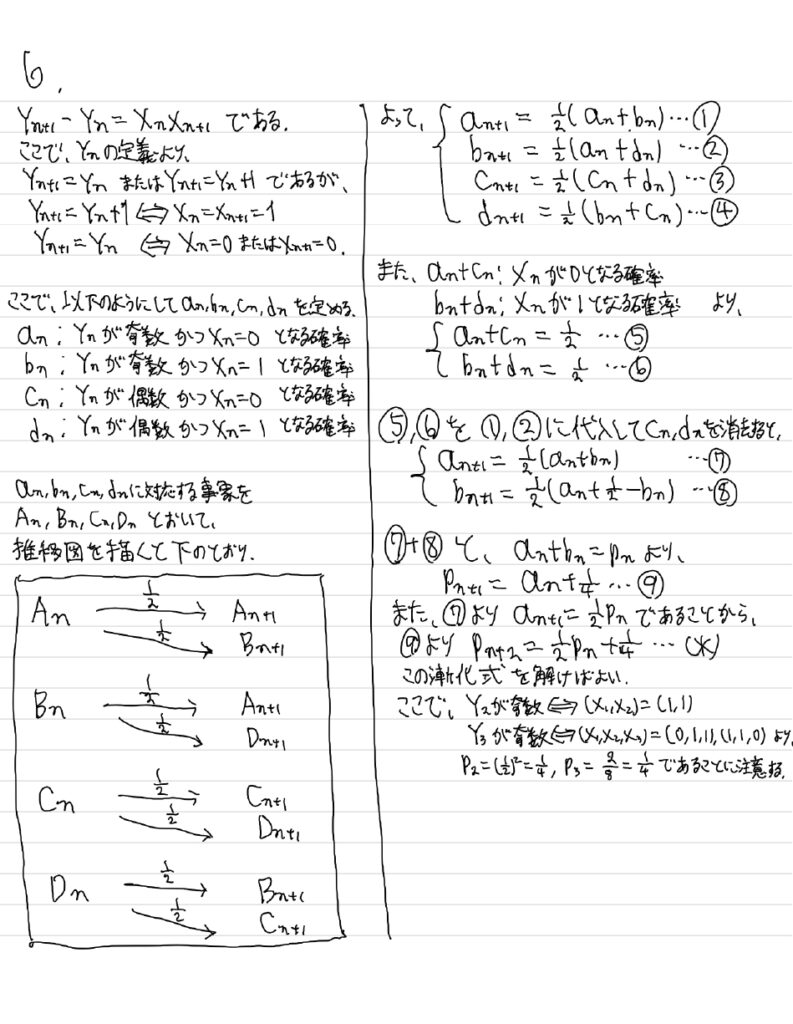 6.
Yn+1 - Yn = XnXn+1 である.
ここで、Ynの定義より、
Yn+1=Yn またはYn+1=Yn+1 であるが、
Yn+1=Yn+1 ⇔ Xn=Xn+1=1
Yn+1=Yn ⇔ Xn=0 またはXn+1=0.
ここで、以下のようにして an,bn,cn,dn を定める.
an : Ynが奇数 かつ Xn=0 となる確率
bn : Ynが奇数 かつ Xn=1 となる確率
cn : Ynが偶数 かつ Xn=0 となる確率
dn : Ynが偶数 かつ Xn=1 となる確率
an,bn,cn,dnに対応する事象を
An,Bn,Cn,Dn とおいて、
推移図を描くと下のとおり.
An 1/2 An+1
1/2 Bn+1
Bn 1/2 An+1
1/2 Dn+1
Cn 1/2 Cn+1
1/2 Dn+1
Dn 1/2 Bn+1
1/2 Cn+1
よって、 an+1 = 1/2(an+bn) … ①
bn+1 = 1/2(an+dn) … ②
cn+1 = 1/2(cn+dn) … ③
dn+1 = 1/2(bn+cn) … ④
また、an+cn : Xnが0となる確率
bn+dn : Xnが1となる確率 より、
an+cn = 1/2 … ⑤
bn+dn = 1/2 … ⑥
⑤,⑥を①,②に代入してcn,dnを消去すると、
an+1 = 1/2(an+bn) … ⑦
bn+1 = 1/2(an+1/2-bn) … ⑧
⑦+⑧ と、an+bn=pn より、
pn+1 = an+1/4 … ⑨
また、⑦より an+1=1/2pn であることから、
⑨より pn+2=1/2pn+1/4 … (*)
この漸化式を解けばよい.
ここで、Y2が奇数⇔(X1,X2)=(1,1)
Y3が奇数⇔(X1,X2,X3)=(0,1,1),(1,1,0) より、
P2=(1/2)²=1/4, P3=2/8=1/4 であることに注意する.